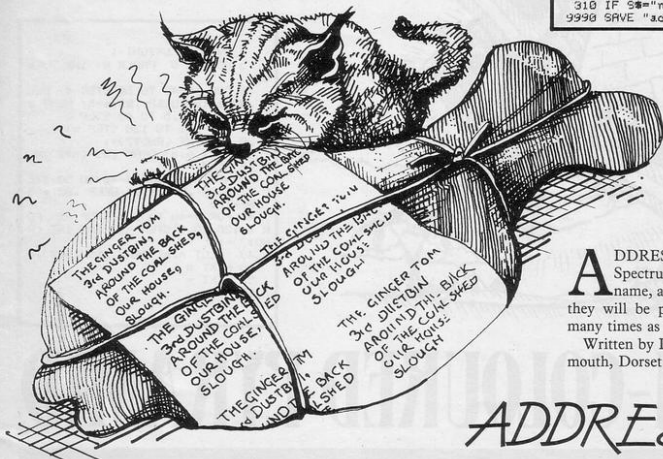 310 IF S$="n
9990 SAVE "ad
THE GINGER TOM
3rd DUSTBIN,
AROUND THE BACK
OF THE COAL SHED,
OUR HOUSE,
SLOUGH.
THE GI
3rd DUSTBIN
AROUND THE BAC
OF THE COAL SHED
OUR HOUSE
SLOUGH
THE GINGER TOM
3rd DUSTBIN
AROUND THE BA
OF THE COAL SHED
OUR HOUSE
SLOUGH
THE GINGE
3rd DUSTBIN
AROUND THE BACK
OF THE COAL SHED
OUR HOUSE,
SLOUGH.
THE GINGER TOM
3rd DUSTBIN
AROUND THE BACK
OF THE COAL SHED
OUR HOUSE
SLOUGH
THE GINGER TM
3rd DUSTBIN,
ND THE BACK
SHED
ADDRES
Spectru
name, a
they will be p
many times as
Written by I
mouth, Dorset
ADDRES